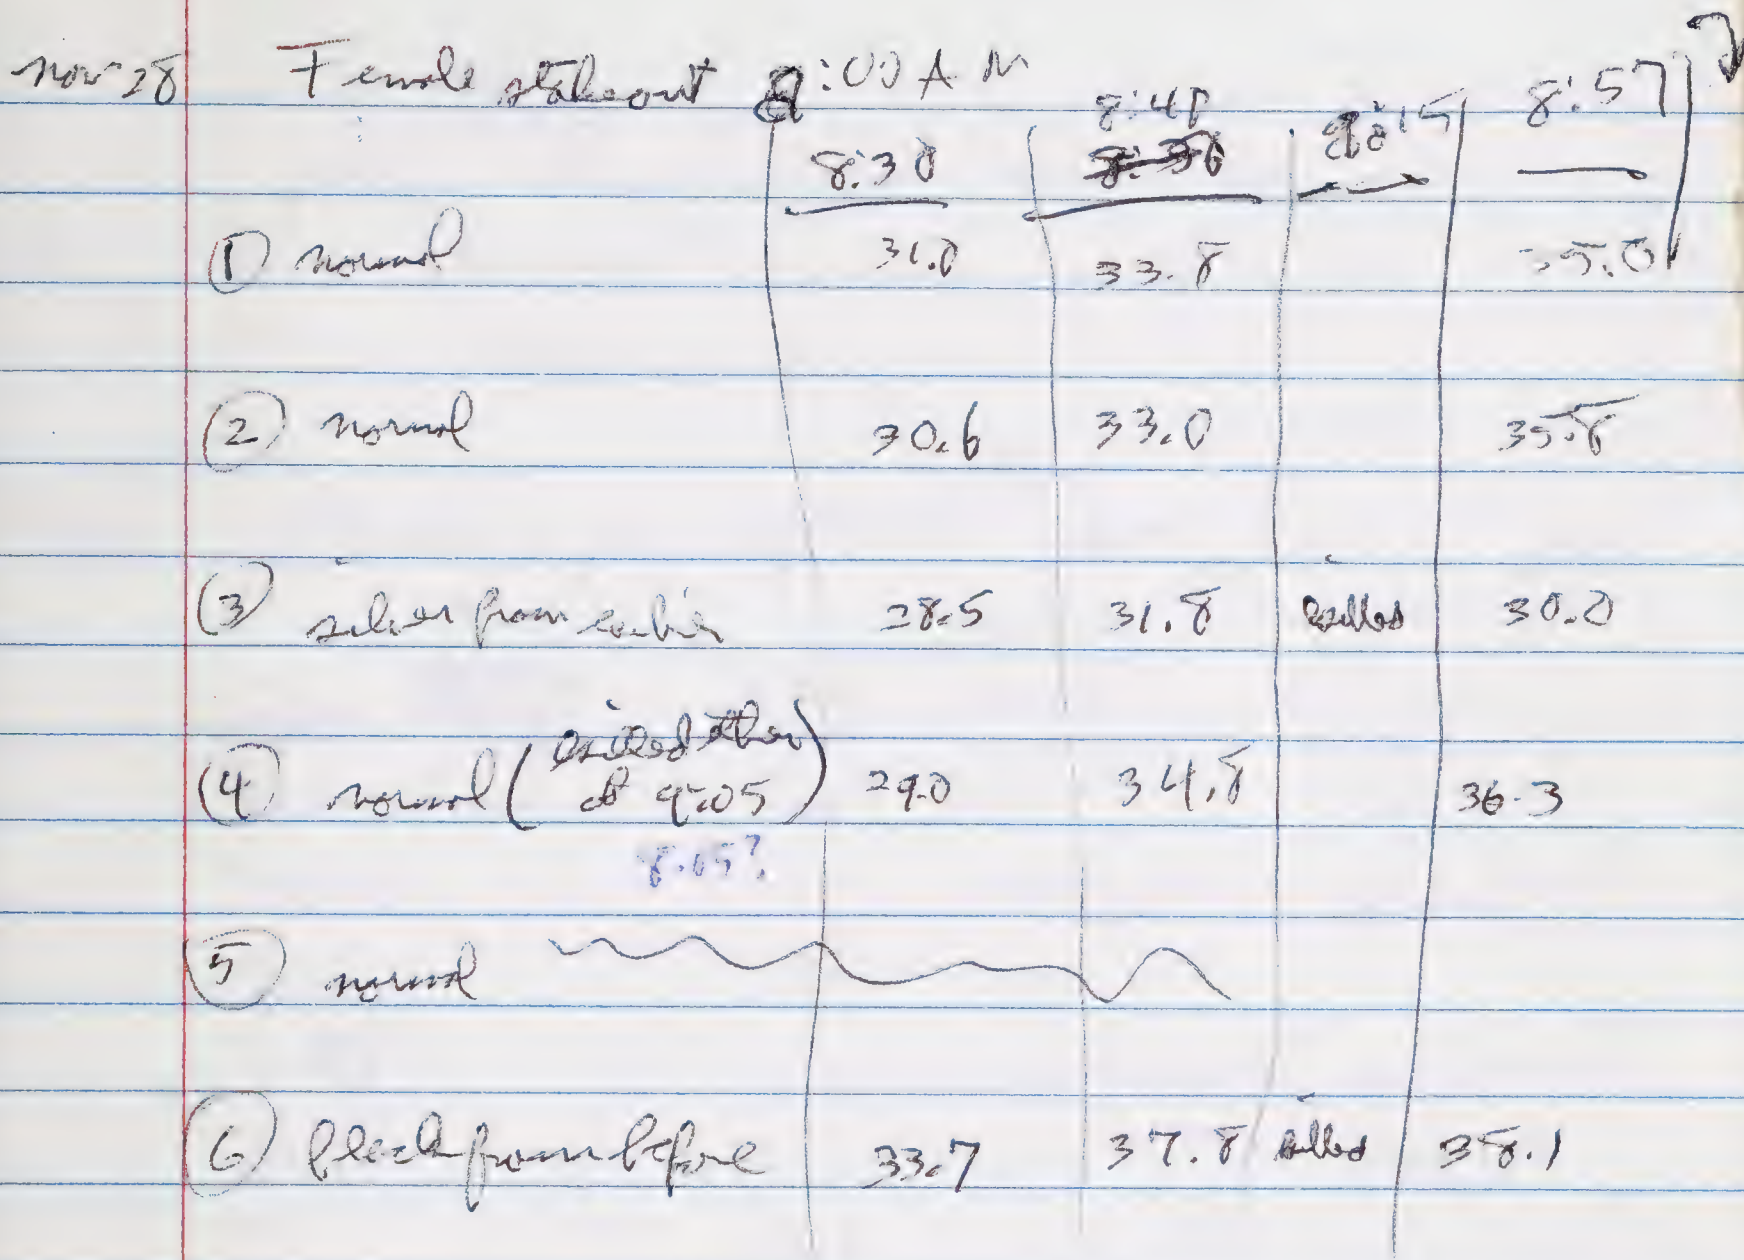 Nov 28 Female stakeout 8:00 AM
8:30 8:41 8:15 8:57
① normal 31.0 33.8 35.0
② normal 30.6 33.0 35.8
③ silver from earlier 28.5 31.8 killed 30.0
④ normal (killed ether at 9:05) 29.0 34.8 36.3
8:05?
⑤ normal
⑥ black from before 33.7 37.8 killed 38.1